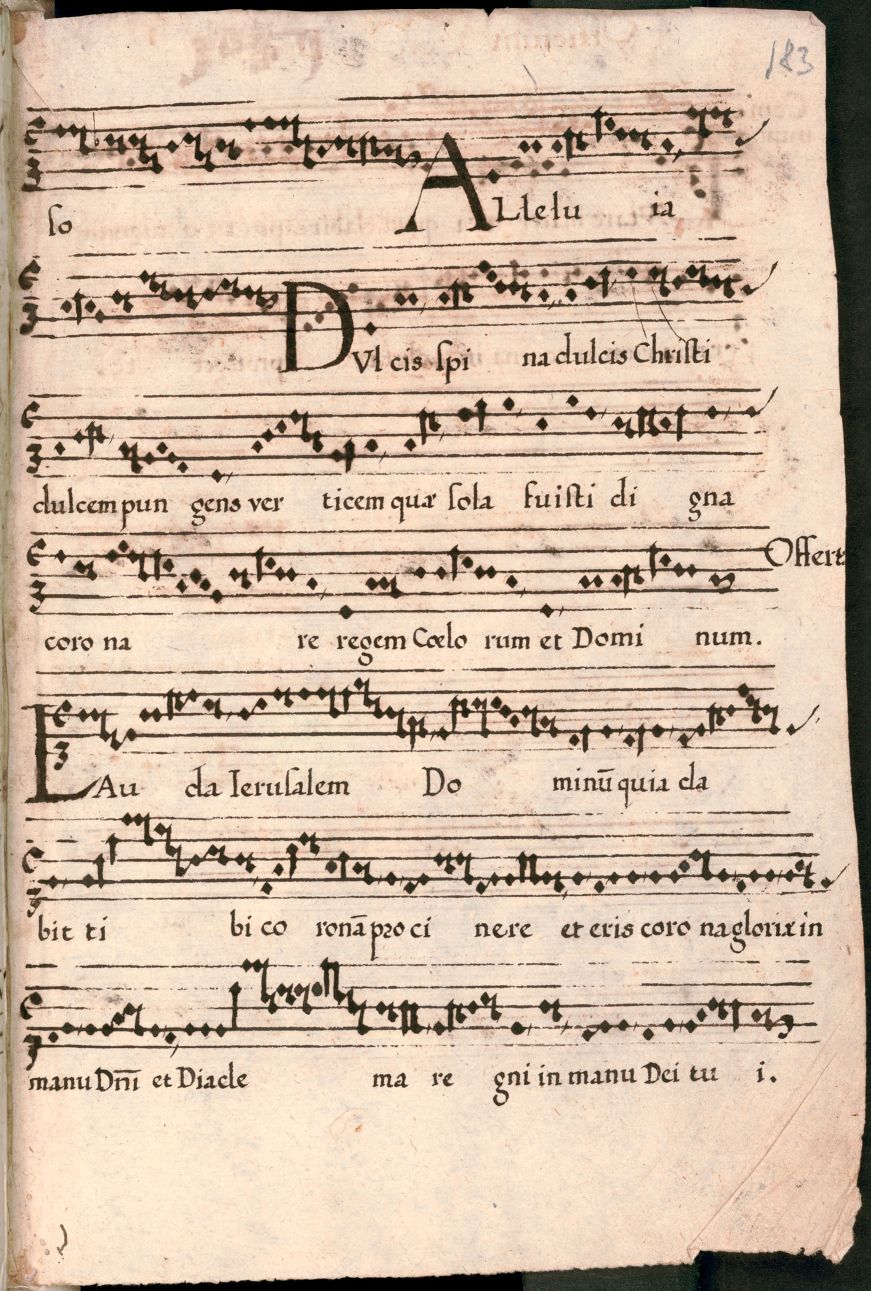 183
so ALlelu ia
DVl cis spi na dulcis Christi
dulcem pun gens ver ticem quæ sola fuisti di gna
Offert.
coro na re regem Cœlo rum et Domi num.
LAu da Ierusalem Do minū quia da
bit ti bi co ronā pro ci nere et eris coro na gloriæ in
manu Dn̄i et Diade ma re gni in manu Dei tu i.